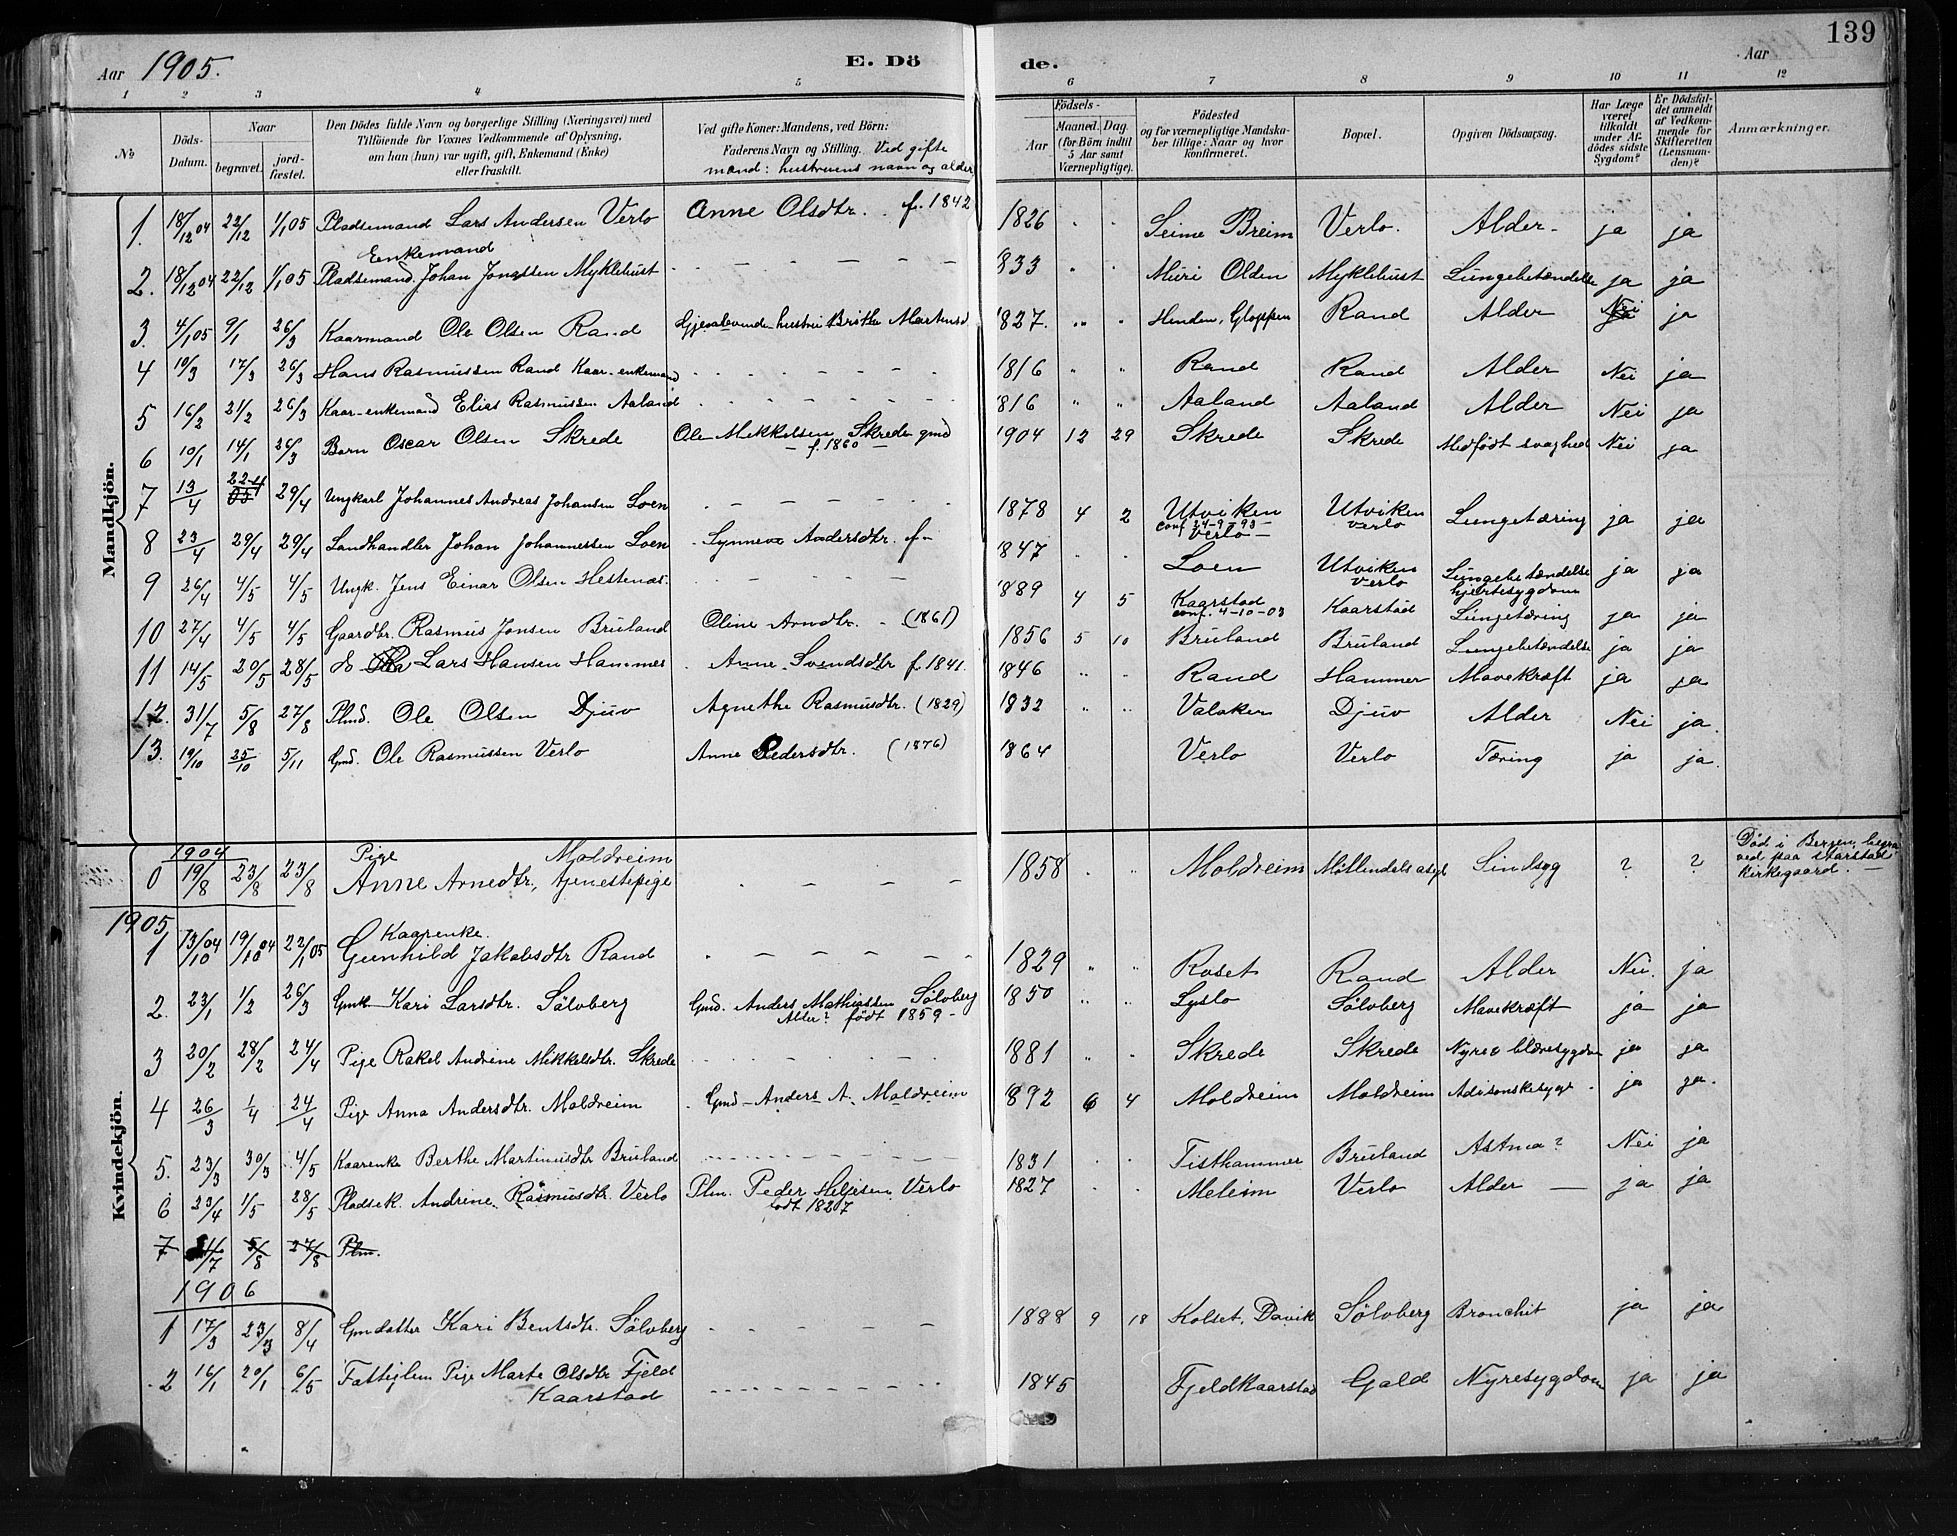 Aar 1905. E. Dö de. Aar 139
1 2 3 4 5 6 7 8 9 10 11 12
No Döds-Datum. Naar begravet. jord-fæstet. Den Dödes fulde Navn og borgerlige Stilling (Næringsvei) med Tilföiende for Voxnes Vedkommende af Oplysning, om han (hun) var ugift, gift, Enkemand (Enke) eller fraskilt. Ved gifte Koner: Mandens, ved Börn: Faderens Navn og Stilling. Ved gifte mænd: hustruens navn og alder Födsels- Aar Maaned. Dag. (for Börn indtil 5 Aar samt Værnepligtige). Födested og for værnepligtige Mandskaber tillige: Naar og hvor konfirmeret. Bopæl. Opgiven Dödsaarsag. Har Læge været tilkaldt under Afdödes sidste Sygdom? Er Dödsfaldet anmeldt af Vedkommende for Skifteretten (Lensmanden)? Anmærkninger.
Mandkjön.
1. 18/12 04 22/12 1/1 05 Pladsemand Lars Andersen Verlo Anne Olsdtr. f. 1842 1826 Seime Breim Verlo. Alder. ja ja
Enkemand
2. 18/12 04 22/12 1/1 05 Pladsemand. Johan Jonassen Myklebust 1833 Muri Olden Myklebust Lungebetændelse ja ja
3. 4/1 05 9/1 26/3 Kaarmand Ole Olsen Rand Gjenlevende hustru Brithe Martensd 1827. Henden, Gloppen Rand Alder Nei ja
4 10/3 17/3 26/3 Hans Rasmussen Rand Kaar-enkemand 1816 Rand Rand Alder Nei ja
5 16/2 21/2 26/3 Kaar-enkemand Elias Rasmussen Aaland 1816 Aaland Aaland Alder Nei ja
6 10/1 14/1 26/3 Barn Oscar Olsen Skrede Ole Mekkelsen Skrede gmd 1904 12 29 Skrede Skrede Medfödt svaghed Nei ja
f. 1860
7 13/4 22-4 29/4 Ungkarl Johannes Andreas Johansen Loen 1878 4 2 Utviken Utviken Lungetæring ja ja
conf 24-9-93 Verlo verlo
8 23/4 29/4 29/4 Landhandler Johan Johannessen Loen Synneve Andersdtr. f- 1847 Loen Utviken Verlo Lungebetændelse hjertesygdom ja ja
9 26/4 4/5 4/5 Ungk. Jens Einar Olsen Hestenæs. 1889 4 5 Kaarstad Kaarstad Lungetæring ja ja
conf. 4-10-03
10 27/4 4/5 4/5 Gaardbr. Rasmus Jonsen Bruland Oline Arndtr. (1861) 1856 5 10 Bruland Bruland Lungebetændelse ja ja
11 14/5 20/5 28/5 do Lars Hansen Hammer Anne Svendsdtr f. 1841. 1846 Rand Hammer Mavekræft ja ja
12. 31/7 5/8 27/8 Plmd. Ole Olsen Djuv Agnethe Rasmusdtr. (1829) 1832 Valaker Djuv Alder Nei ja.
13. 19/10 25/10 5/11 Gmd. Ole Rasmussen Verlo Anne Pedersdtr. (1876) 1864 Verlo Verlo Tæring ja ja.
Kvindekjön.
1904
Pige Moldreim
0 19/8 23/8 23/8 Anne Arnedtr, tjenestepige 1858 Moldreim Möllendals asyl Sindsyg ? ? Död i Bergen, begraved paa Starstads Kirkegaard.
1905
Kaarenke.
1 13/10 04 19/10 04 22/1 05 Gunhild Jakobsdtr Rand 1829 Roset Rand Alder Nei. ja
2. 23/1 1/2 26/3 Gmk Kari Larsdtr. Sölvberg Gmd. Anders Mathiassen Sölvberg 1850 Lyslo Sölvberg Mavekræft ja ja
Alder? födt 1859-
3 20/2 28/2 24/4 Pige Rakel Andrine Mikkelsdtr. Skrede 1881 Skrede Skrede Nyre & blæresygdom ja ja
4 26/3 1/4 24/4 Pige Anna Andersdtr. Moldreim Gmd-Anders A. Moldreim 1892 6 4 Moldreim Moldreim Adisonskesyge ja ja.
5. 23/3 30/3 4/5 Kaarenke Berthe Martinusdtr Bruland 1831 Tisthammer Bruland Astma? Nei ja
6 23/4 1/5 28/5 Pladsek. Andrine Rasmusdtr. Verlo Plm. Peder Heljesen Verlo 1827 Meleim Verlo Alder ja ja
födt 1827
7 31/7 5/8 27/8 Plm.
1906
1 17/3 23/3 8/4 Gmdatter Kari Bentsdtr. Sölvberg 1888 9 18 Kolset, Davik Sölvberg Bronchit ja ja
2 16/1 20/1 6/5 Fattiglem Pige Marte Olsdtr Fjeld 1845 Fjeldkaarstad Gald Nyresygdom ja ja
Kaarstad